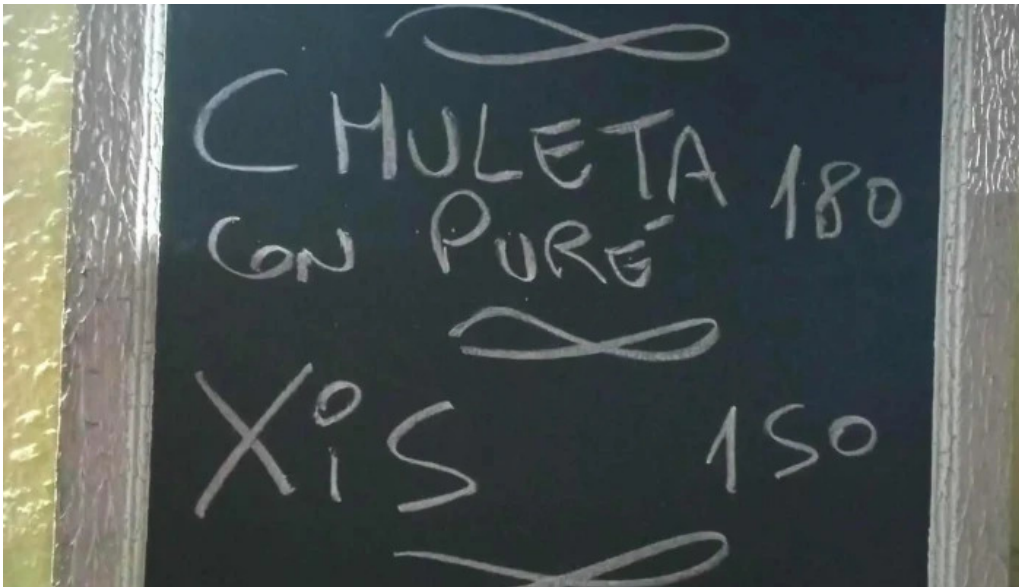 CHULETA 180
CON PURÉ
XiS 150